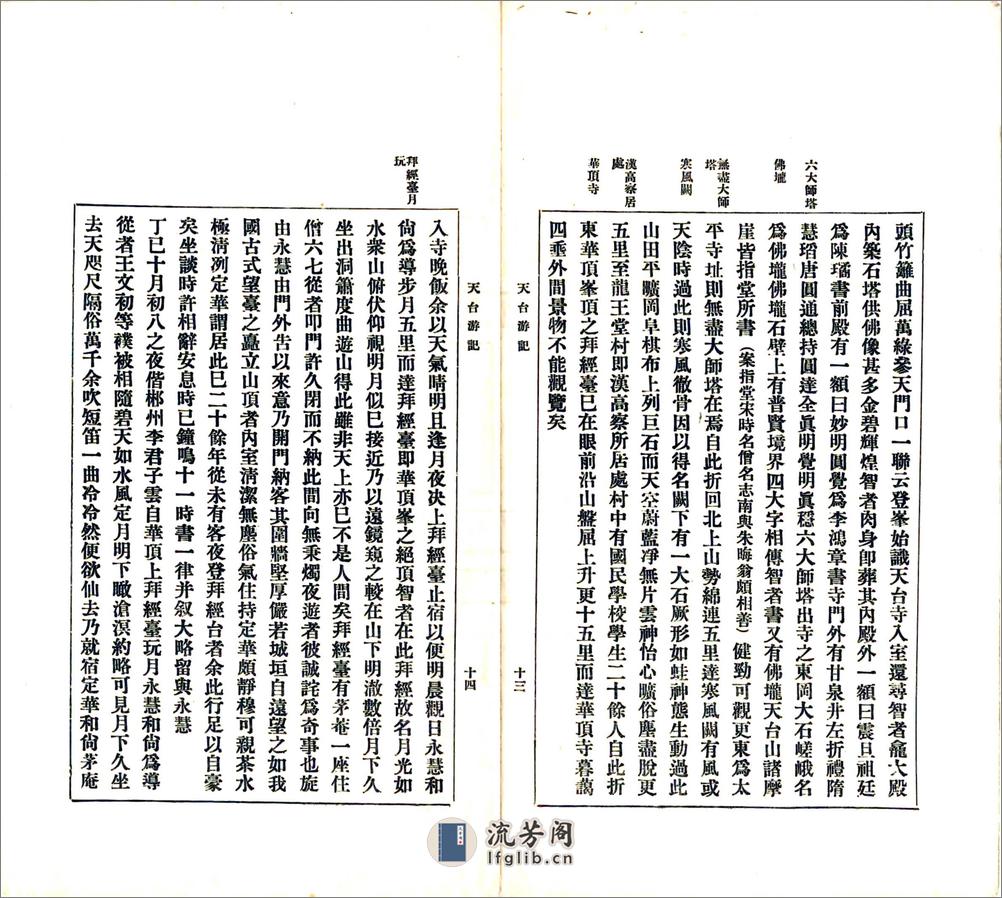 六大師塔
佛壠
無盡大師塔
寒風闕
漢高察居處
華頂寺
頭竹籬曲屈萬綠參天門口一聯云登峯始識天台寺入室還尋智者龕大殿
內築石塔供佛像甚多金碧輝煌智者肉身卽葬其內殿外一額曰震旦祖廷
爲陳璚書前殿有一額曰妙明圓覺爲李鴻章書寺門外有甘泉井左折禮隋
慧瑫唐圓通總持圓達全眞明覺明眞穩六大師塔出寺之東岡大石嵯峨名
爲佛壠佛壠石壁上有普賢境界四大字相傳智者書又有佛壠天台山諸摩
崖皆指堂所書（案指堂宋時名僧名志南與朱晦翁頗相善）健勁可觀更東爲太
平寺址則無盡大師塔在焉自此折回北上山勢綿連五里達寒風闕有風或
天陰時過此則寒風徹骨因以得名闕下有一大石厥形如蛙神態生動過此
山田平曠岡阜棋布上列巨石而天空蔚藍凈無片雲神怡心曠俗塵盡脫更
五里至龍王堂村即漢高察所居處村中有國民學校學生二十餘人自此折
東華頂峯頂之拜經臺已在眼前沿山盤屈上升更十五里而達華頂寺暮藹
四垂外間景物不能觀覽矣
天台游記
十三
天台游記
十四
拜經臺月玩
入寺晚飯余以天氣晴明且逢月夜決上拜經臺止宿以便明晨觀日永慧和
尙爲導步月五里而達拜經臺即華頂峯之絕頂智者在此拜經故名月光如
水衆山俯伏仰視明月似已接近乃以遠鏡窺之較在山下明澈數倍月下久
坐出洞簫度曲遊山得此雖非天上亦已不是人間矣拜經臺有茅菴一座住
僧六七從者叩門許久閉而不納此間向無秉燭夜遊者彼誠詫爲奇事也旋
由永慧由門外告以來意乃開門納客其圍牆堅厚儼若城垣自遠望之如我
國古式望臺之矗立山頂者內室清潔無塵俗氣住持定華頗靜穆可親茶水
極清冽定華謂居此已二十餘年從未有客夜登拜經台者余此行足以自豪
矣坐談時許相辭安息時已鐘鳴十一時書一律并叙大略留與永慧
丁已十月初八之夜偕郴州李君子雲自華頂上拜經臺玩月永慧和尙爲導
從者王文初等襆被相隨碧天如水風定月明下瞰滄溟約略可見月下久坐
去天咫尺隔俗萬千余吹短笛一曲冷冷然便欲仙去乃就宿定華和尙茅庵
流芳阁
lfglib.cn